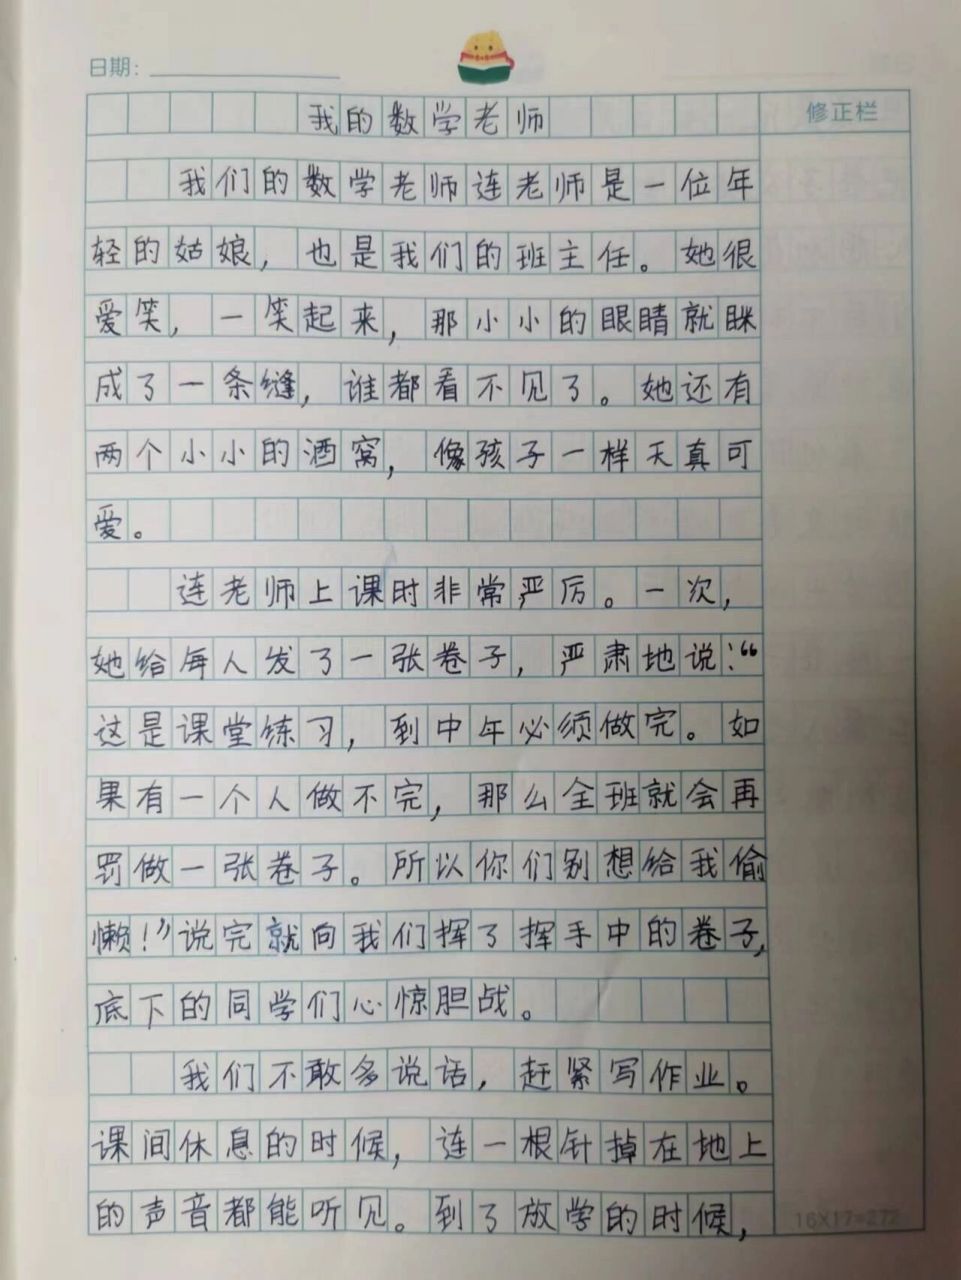 日期：
我的数学老师
修正栏
我们的数学老师连老师是一位年
轻的姑娘，也是我们的班主任。她很
爱笑，一笑起来，那小小的眼睛就眯
成了一条缝，谁都看不见了。她还有
两个小小的酒窝，像孩子一样天真可
爱。
连老师上课时非常严厉。一次，
她给每人发了一张卷子，严肃地说：“
这是课堂练习，到中午必须做完。如
果有一个人做不完，那么全班就会再
罚做一张卷子。所以你们别想给我偷
懒！”说完就向我们挥了挥手中的卷子，
底下的同学们心惊胆战。
我们不敢多说话，赶紧写作业。
课间休息的时候，连一根针掉在地上
的声音都能听见。到了放学的时候，
16X17=272